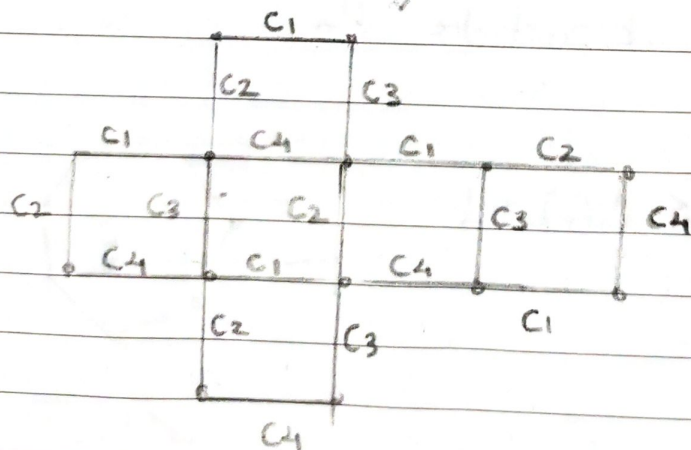 C1
C2 C3
C1 C4 C1 C2
C2 C3 C2 C3 C4
C4 C1 C4 C1
C2 C3
C4